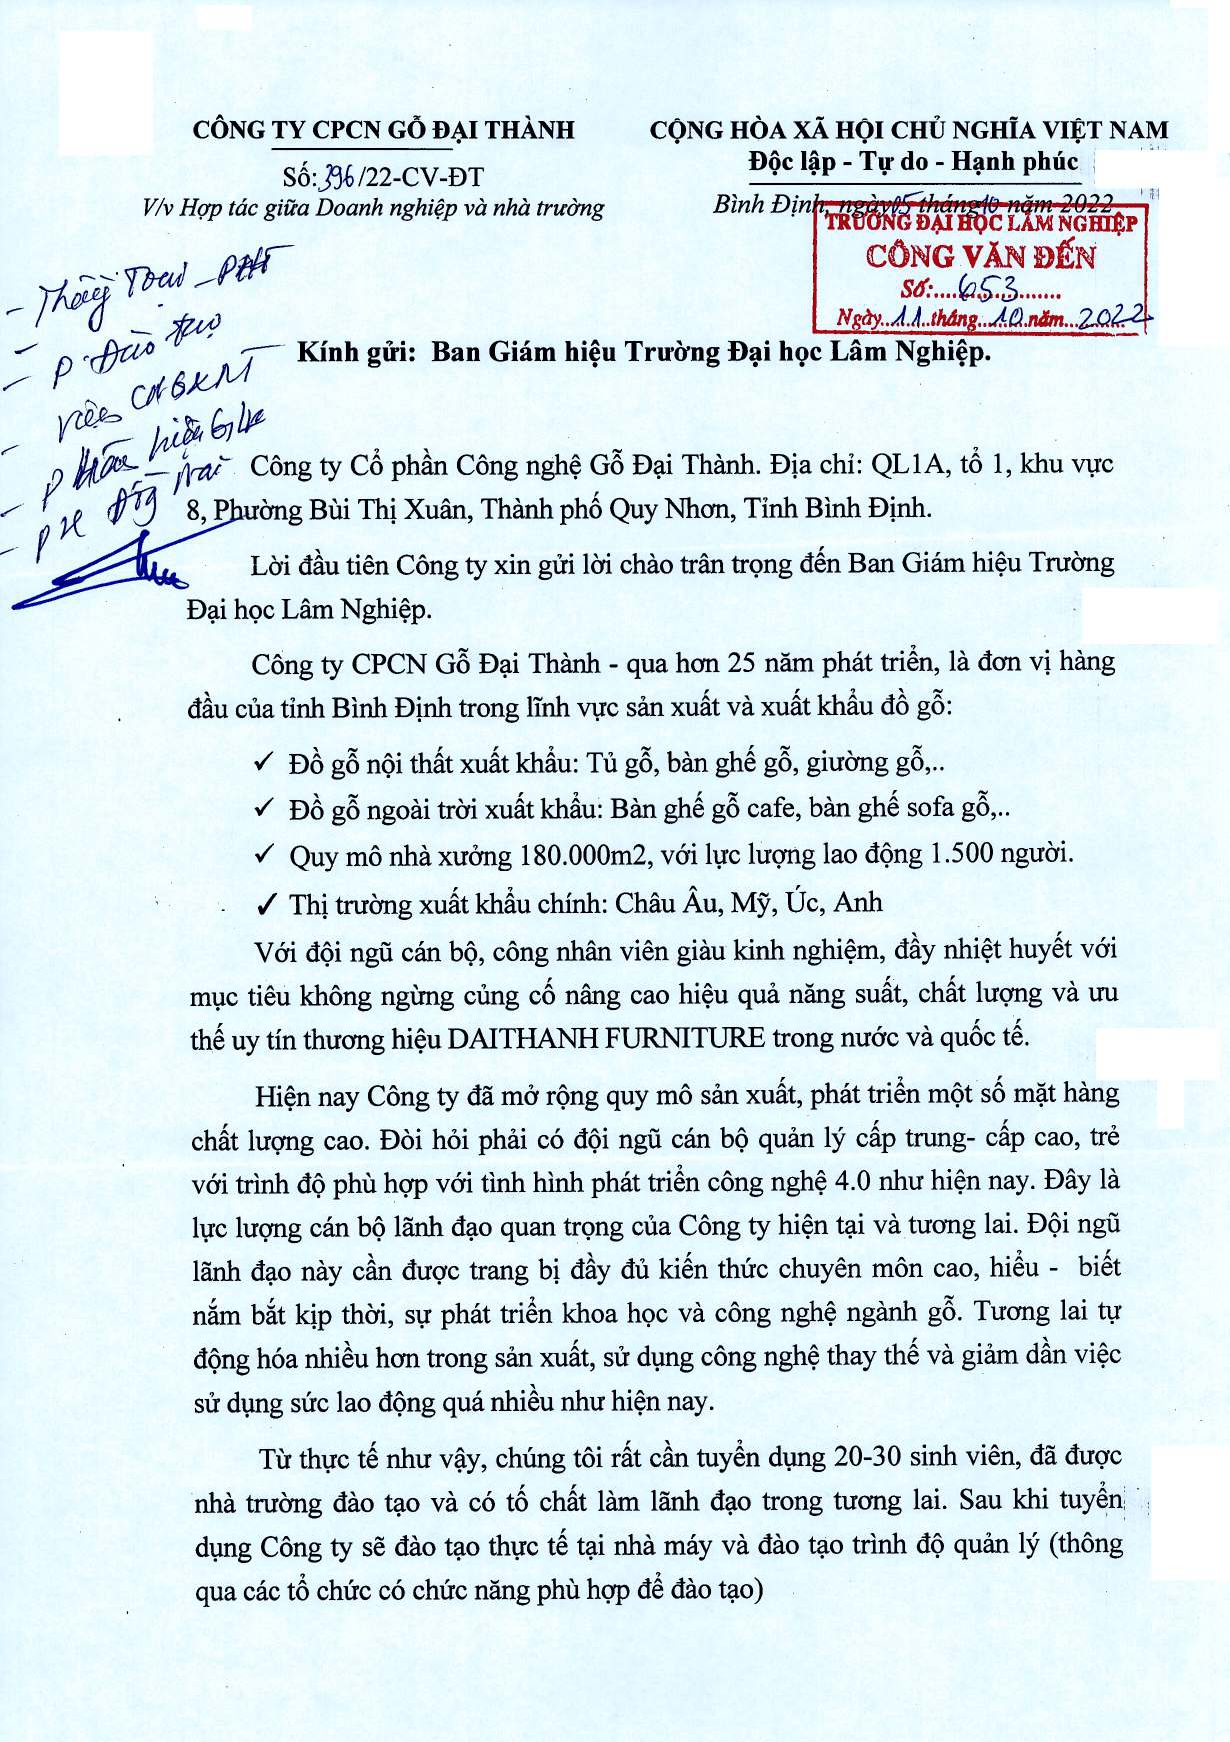 CÔNG TY CPCN GỖ ĐẠI THÀNH
Số: 396/22-CV-ĐT
V/v Hợp tác giữa Doanh nghiệp và nhà trường
CỘNG HÒA XÃ HỘI CHỦ NGHĨA VIỆT NAM
Độc lập - Tự do - Hạnh phúc
Bình Định, ngày 05 tháng 10 năm 2022
TRƯỜNG ĐẠI HỌC LÂM NGHIỆP
CÔNG VĂN ĐẾN
Số:....653....
Ngày..11..tháng..10.năm..2022
- Thầy Toại - PHT
- P Đào tạo
- Viện CNGXNT
- P
- P
Kính gửi: Ban Giám hiệu Trường Đại học Lâm Nghiệp.
Công ty Cổ phần Công nghệ Gỗ Đại Thành. Địa chỉ: QL1A, tổ 1, khu vực
8, Phường Bùi Thị Xuân, Thành phố Quy Nhơn, Tỉnh Bình Định.
Lời đầu tiên Công ty xin gửi lời chào trân trọng đến Ban Giám hiệu Trường
Đại học Lâm Nghiệp.
Công ty CPCN Gỗ Đại Thành - qua hơn 25 năm phát triển, là đơn vị hàng
đầu của tỉnh Bình Định trong lĩnh vực sản xuất và xuất khẩu đồ gỗ:
✓ Đồ gỗ nội thất xuất khẩu: Tủ gỗ, bàn ghế gỗ, giường gỗ,..
✓ Đồ gỗ ngoài trời xuất khẩu: Bàn ghế gỗ cafe, bàn ghế sofa gỗ,..
✓ Quy mô nhà xưởng 180.000m2, với lực lượng lao động 1.500 người.
✓ Thị trường xuất khẩu chính: Châu Âu, Mỹ, Úc, Anh
Với đội ngũ cán bộ, công nhân viên giàu kinh nghiệm, đầy nhiệt huyết với
mục tiêu không ngừng củng cố nâng cao hiệu quả năng suất, chất lượng và ưu
thế uy tín thương hiệu DAITHANH FURNITURE trong nước và quốc tế.
Hiện nay Công ty đã mở rộng quy mô sản xuất, phát triển một số mặt hàng
chất lượng cao. Đòi hỏi phải có đội ngũ cán bộ quản lý cấp trung- cấp cao, trẻ
với trình độ phù hợp với tình hình phát triển công nghệ 4.0 như hiện nay. Đây là
lực lượng cán bộ lãnh đạo quan trọng của Công ty hiện tại và tương lai. Đội ngũ
lãnh đạo này cần được trang bị đầy đủ kiến thức chuyên môn cao, hiểu - biết
nắm bắt kịp thời, sự phát triển khoa học và công nghệ ngành gỗ. Tương lai tự
động hóa nhiều hơn trong sản xuất, sử dụng công nghệ thay thế và giảm dần việc
sử dụng sức lao động quá nhiều như hiện nay.
Từ thực tế như vậy, chúng tôi rất cần tuyển dụng 20-30 sinh viên, đã được
nhà trường đào tạo và có tố chất làm lãnh đạo trong tương lai. Sau khi tuyển
dụng Công ty sẽ đào tạo thực tế tại nhà máy và đào tạo trình độ quản lý (thông
qua các tổ chức có chức năng phù hợp để đào tạo)